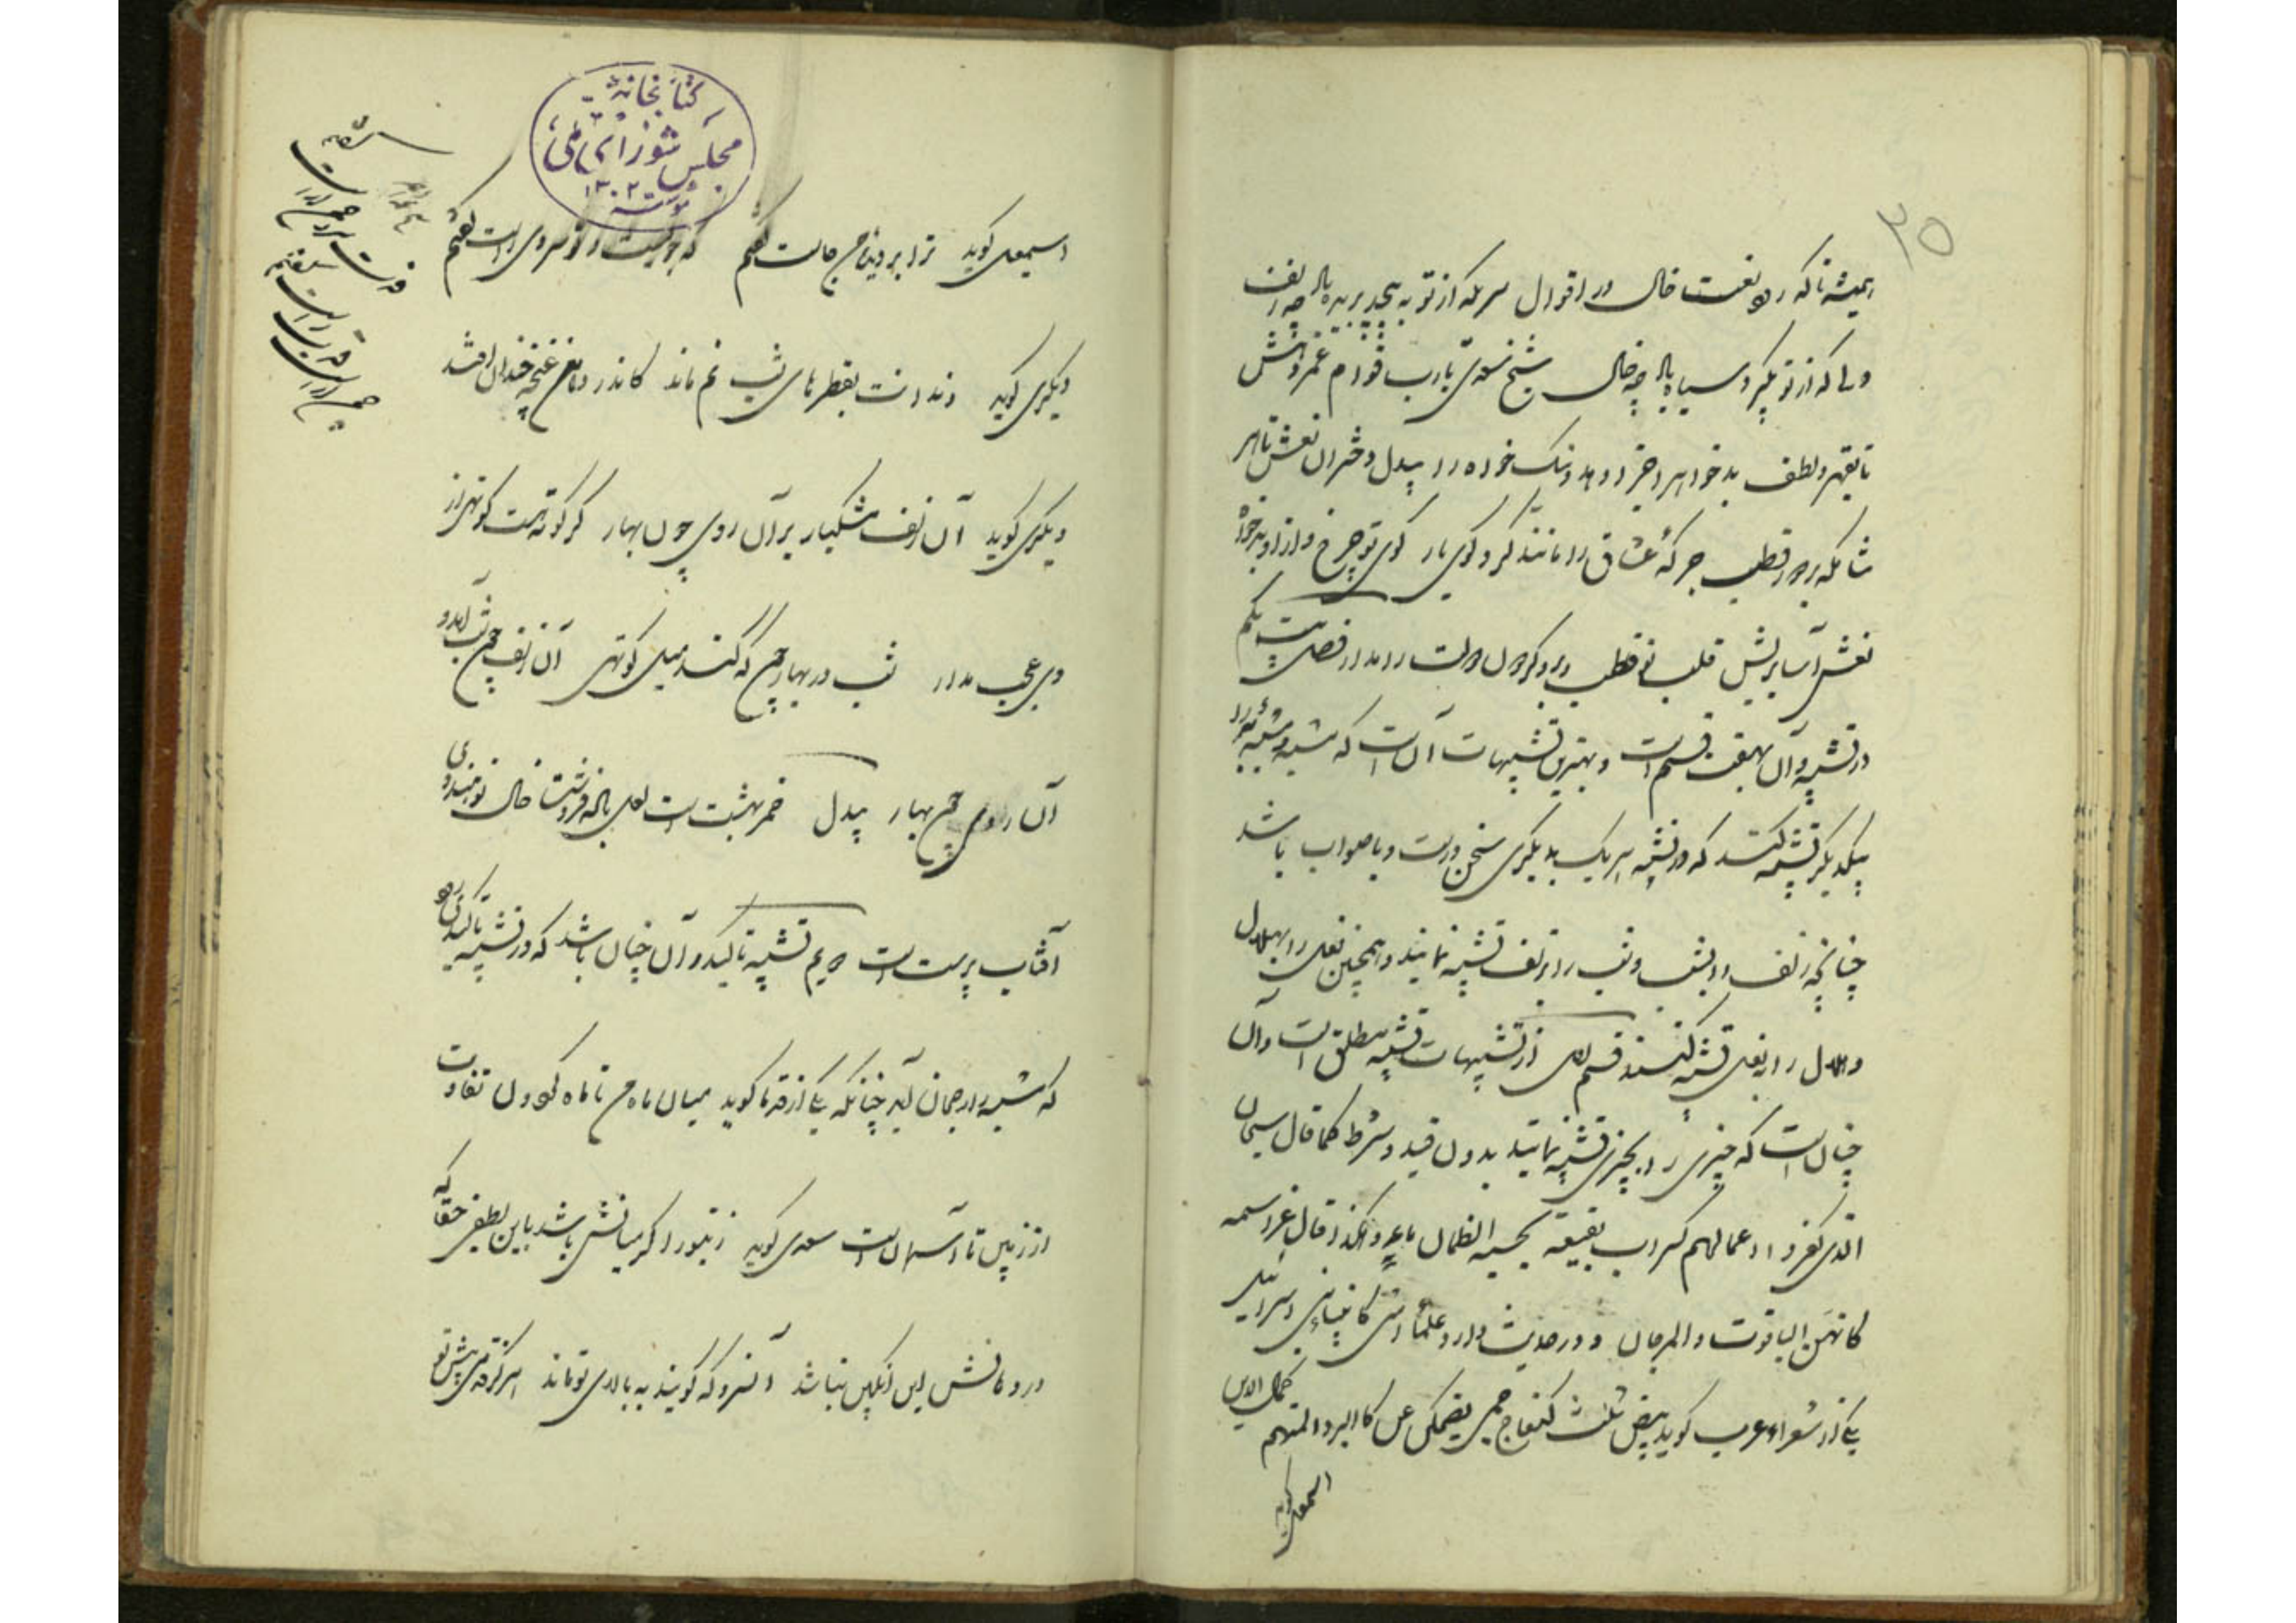 ۳۵
همیشه تا که بود نعت خال در اقوال سری که از تو به پیچد بریده باد چو زلف
دلی که از تو بگردد سیاه باد چو خال شیخ سعدی یارب دوام عمر دهش
تا بقهر و لطف بدخواه را جزا دهد و نیک خواه را بیدل دختران نعش تا هر
شامگه بر دور قطب جرگهٔ عشاق را مانند گرد کوی یار کوی تو چرخ و از او بدخواه
نعش آسا پریش قلب تو قطب و بر او گردون دولت را مدار فصل بیست یکم
در تشبیه و آن بهفت قسم است و بهترین تشبیهات آن است که مشبه و مشبه به را
بیکدیگر تشبیه کنند که در تشبیه هر یک بدیگری سخن درست و با صواب باشد
چنانچه زلف را بشب و شب را بزلف تشبیه نمایند و همچنین نعل را بهلال
و هلال را بنعل تشبیه کنند قسم اول از تشبیهات تشبیه مطلق است و آن
چنان است که چیزی را بچیزی تشبیه نمایند بدون قید و شرط کما قال سبحان
الذی کفروا اعمالهم کسراب بقیعة یحسبه الظمان ماء و کذا قال عز اسمه
کانهن الیاقوت والمرجان و در حدیث وارد علماء امتی کانبیاء بنی اسرائیل
یکی از شعراء عرب گوید بیض ثلث کنعاج جم یضحکن عن کالبرد المنهم کمال الدین
اسمعیل گوید
کتابخانهٔ
مجلس شورای ملی
۱۳۰۲
اسمعیل گوید ترا بر دیدهٔ من جاست گفتم که جویست و تو سروی راست گفتم
دیگری گوید دندانت بقطرهای شب نم ماند کاندر دهن غنچهٔ خندان افتد
دیگری گوید آن زلف مشکبار بر آن روی چون بهار گر کوته است کوتهی از
وی عجب مدار شب در بهار چون که کند میل کوتهی آن زلف چون شب آمد و
آن روی چون بهار بیدل خمر بهشت است لعل باده فروشت خال تو هندوی
آفتاب پرست است دویم تشبیه تاکید و آن چنان باشد که در تشبیه تاکیدی بود
که مشبه را رجحان آید چنانکه یکی از قدما گوید میان ماه من تا ماه گردون تفاوت
از زمین تا آسمان است سعدی گوید زنبور اگر میانش باشد باین لطیفی حقا که
در دهانش این انگبین نباشد آن سرو که گویند به بالای تو ماند هرگز قدمی پیش تو